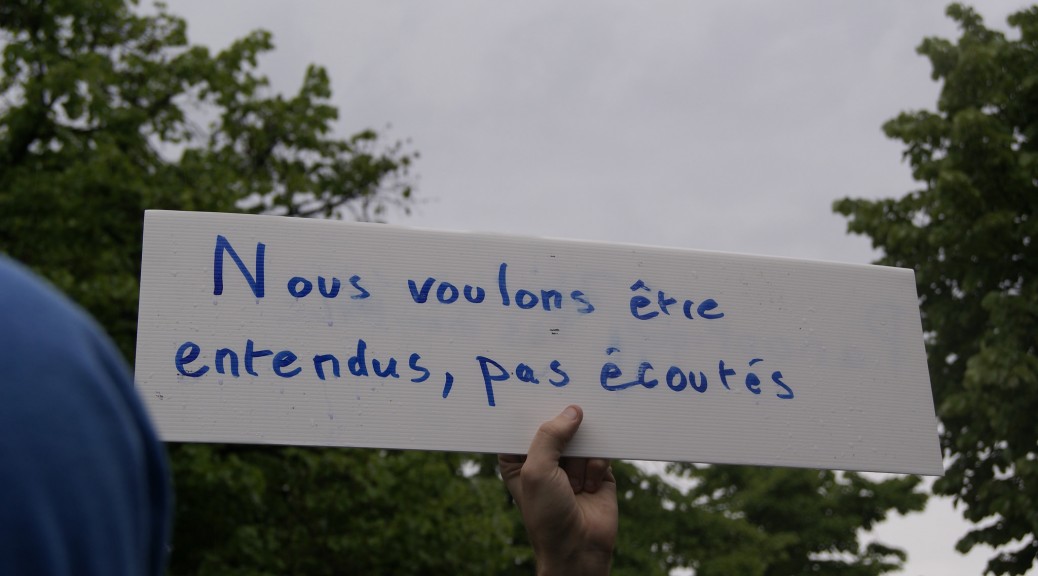 Nous voulons être
entendus, pas écoutés